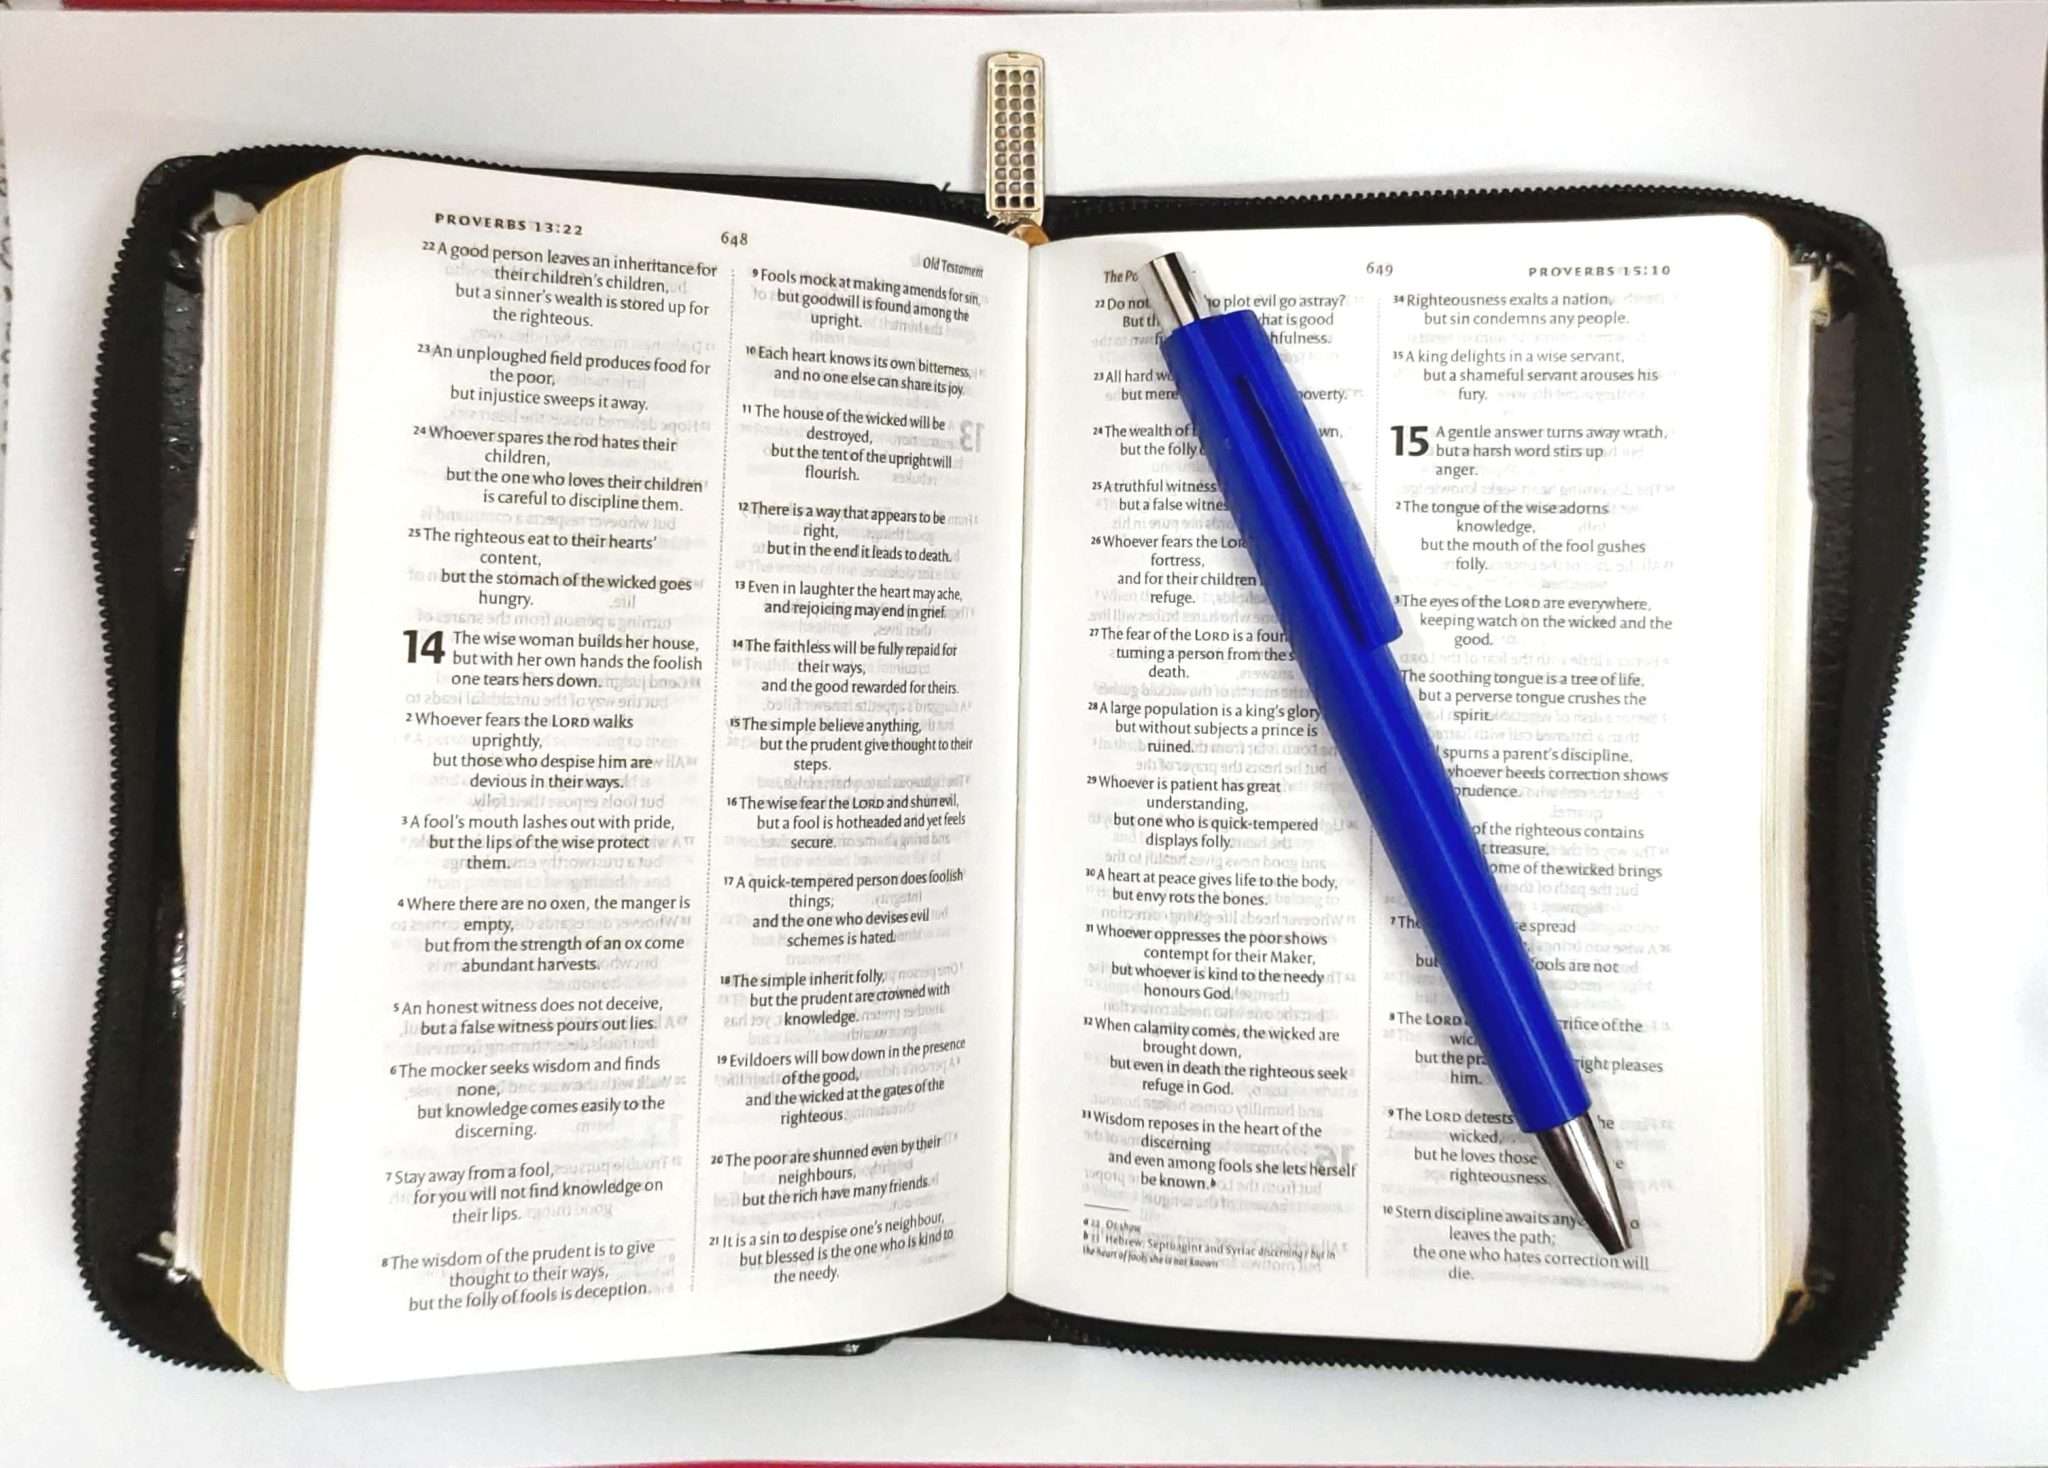 PROVERBS 13:22
648
Old Testament
22 A good person leaves an inheritance for
their children's children,
but a sinner's wealth is stored up for
the righteous.
23 An unploughed field produces food for
the poor,
but injustice sweeps it away.
24 Whoever spares the rod hates their
children,
but the one who loves their children
is careful to discipline them.
25 The righteous eat to their hearts'
content,
but the stomach of the wicked goes
hungry.
14 The wise woman builds her house,
but with her own hands the foolish
one tears hers down.
2 Whoever fears the LORD walks
uprightly,
but those who despise him are
devious in their ways.
3 A fool's mouth lashes out with pride,
but the lips of the wise protect
them.
4 Where there are no oxen, the manger is
empty,
but from the strength of an ox come
abundant harvests.
5 An honest witness does not deceive,
but a false witness pours out lies.
6 The mocker seeks wisdom and finds
none,
but knowledge comes easily to the
discerning.
7 Stay away from a fool,
for you will not find knowledge on
their lips.
8 The wisdom of the prudent is to give
thought to their ways,
but the folly of fools is deception.
9 Fools mock at making amends for sin,
but goodwill is found among the
upright.
10 Each heart knows its own bitterness,
and no one else can share its joy.
11 The house of the wicked will be
destroyed,
but the tent of the upright will
flourish.
12 There is a way that appears to be
right,
but in the end it leads to death.
13 Even in laughter the heart may ache,
and rejoicing may end in grief.
14 The faithless will be fully repaid for
their ways,
and the good rewarded for theirs.
15 The simple believe anything,
but the prudent give thought to their
steps.
16 The wise fear the LORD and shun evil,
but a fool is hotheaded and yet feels
secure.
17 A quick-tempered person does foolish
things;
and the one who devises evil
schemes is hated.
18 The simple inherit folly,
but the prudent are crowned with
knowledge.
19 Evildoers will bow down in the presence
of the good,
and the wicked at the gates of the
righteous.
20 The poor are shunned even by their
neighbours,
but the rich have many friends.
21 It is a sin to despise one's neighbour,
but blessed is the one who is kind to
the needy.
The
649
PROVERBS 15:10
22 Do not plot evil go astray?
But what is good
23 All hard
but mere poverty.
24 The wealth of
but the folly
25 A truthful witness
but a false
26 Whoever fears the
fortress,
and for their children
refuge.
27 The fear of the LORD is a
turning a person from the
death.
28 A large population is a king's glory,
but without subjects a prince is
ruined.
29 Whoever is patient has great
understanding,
but one who is quick-tempered
displays folly.
30 A heart at peace gives life to the body,
but envy rots the bones.
31 Whoever oppresses the poor shows
contempt for their Maker,
but whoever is kind to the needy
honours God.
32 When calamity comes, the wicked are
brought down,
but even in death the righteous seek
refuge in God.
33 Wisdom reposes in the heart of the
discerning
and even among fools she lets herself
be known.b
a 22 Or show
b 33 Hebrew; Septuagint and Syriac discerning / but in
the heart of fools she is not known
34 Righteousness exalts a nation,
but sin condemns any people.
35 A king delights in a wise servant,
but a shameful servant arouses his
fury.
15 A gentle answer turns away wrath,
but a harsh word stirs up
anger.
2 The tongue of the wise adorns
knowledge,
but the mouth of the fool gushes
folly.
3 The eyes of the LORD are everywhere,
keeping watch on the wicked and the
good.
The soothing tongue is a tree of life,
but a perverse tongue crushes the
spirit.
spurns a parent's discipline,
whoever heeds correction shows
prudence.
of the righteous contains
treasure,
of the wicked brings
7 spread
fools are not
8 The LORD of the
but the pleases
him.
9 The LORD detests
wicked,
but he loves those
righteousness.
10 Stern discipline awaits
leaves the path;
the one who hates correction will
die.